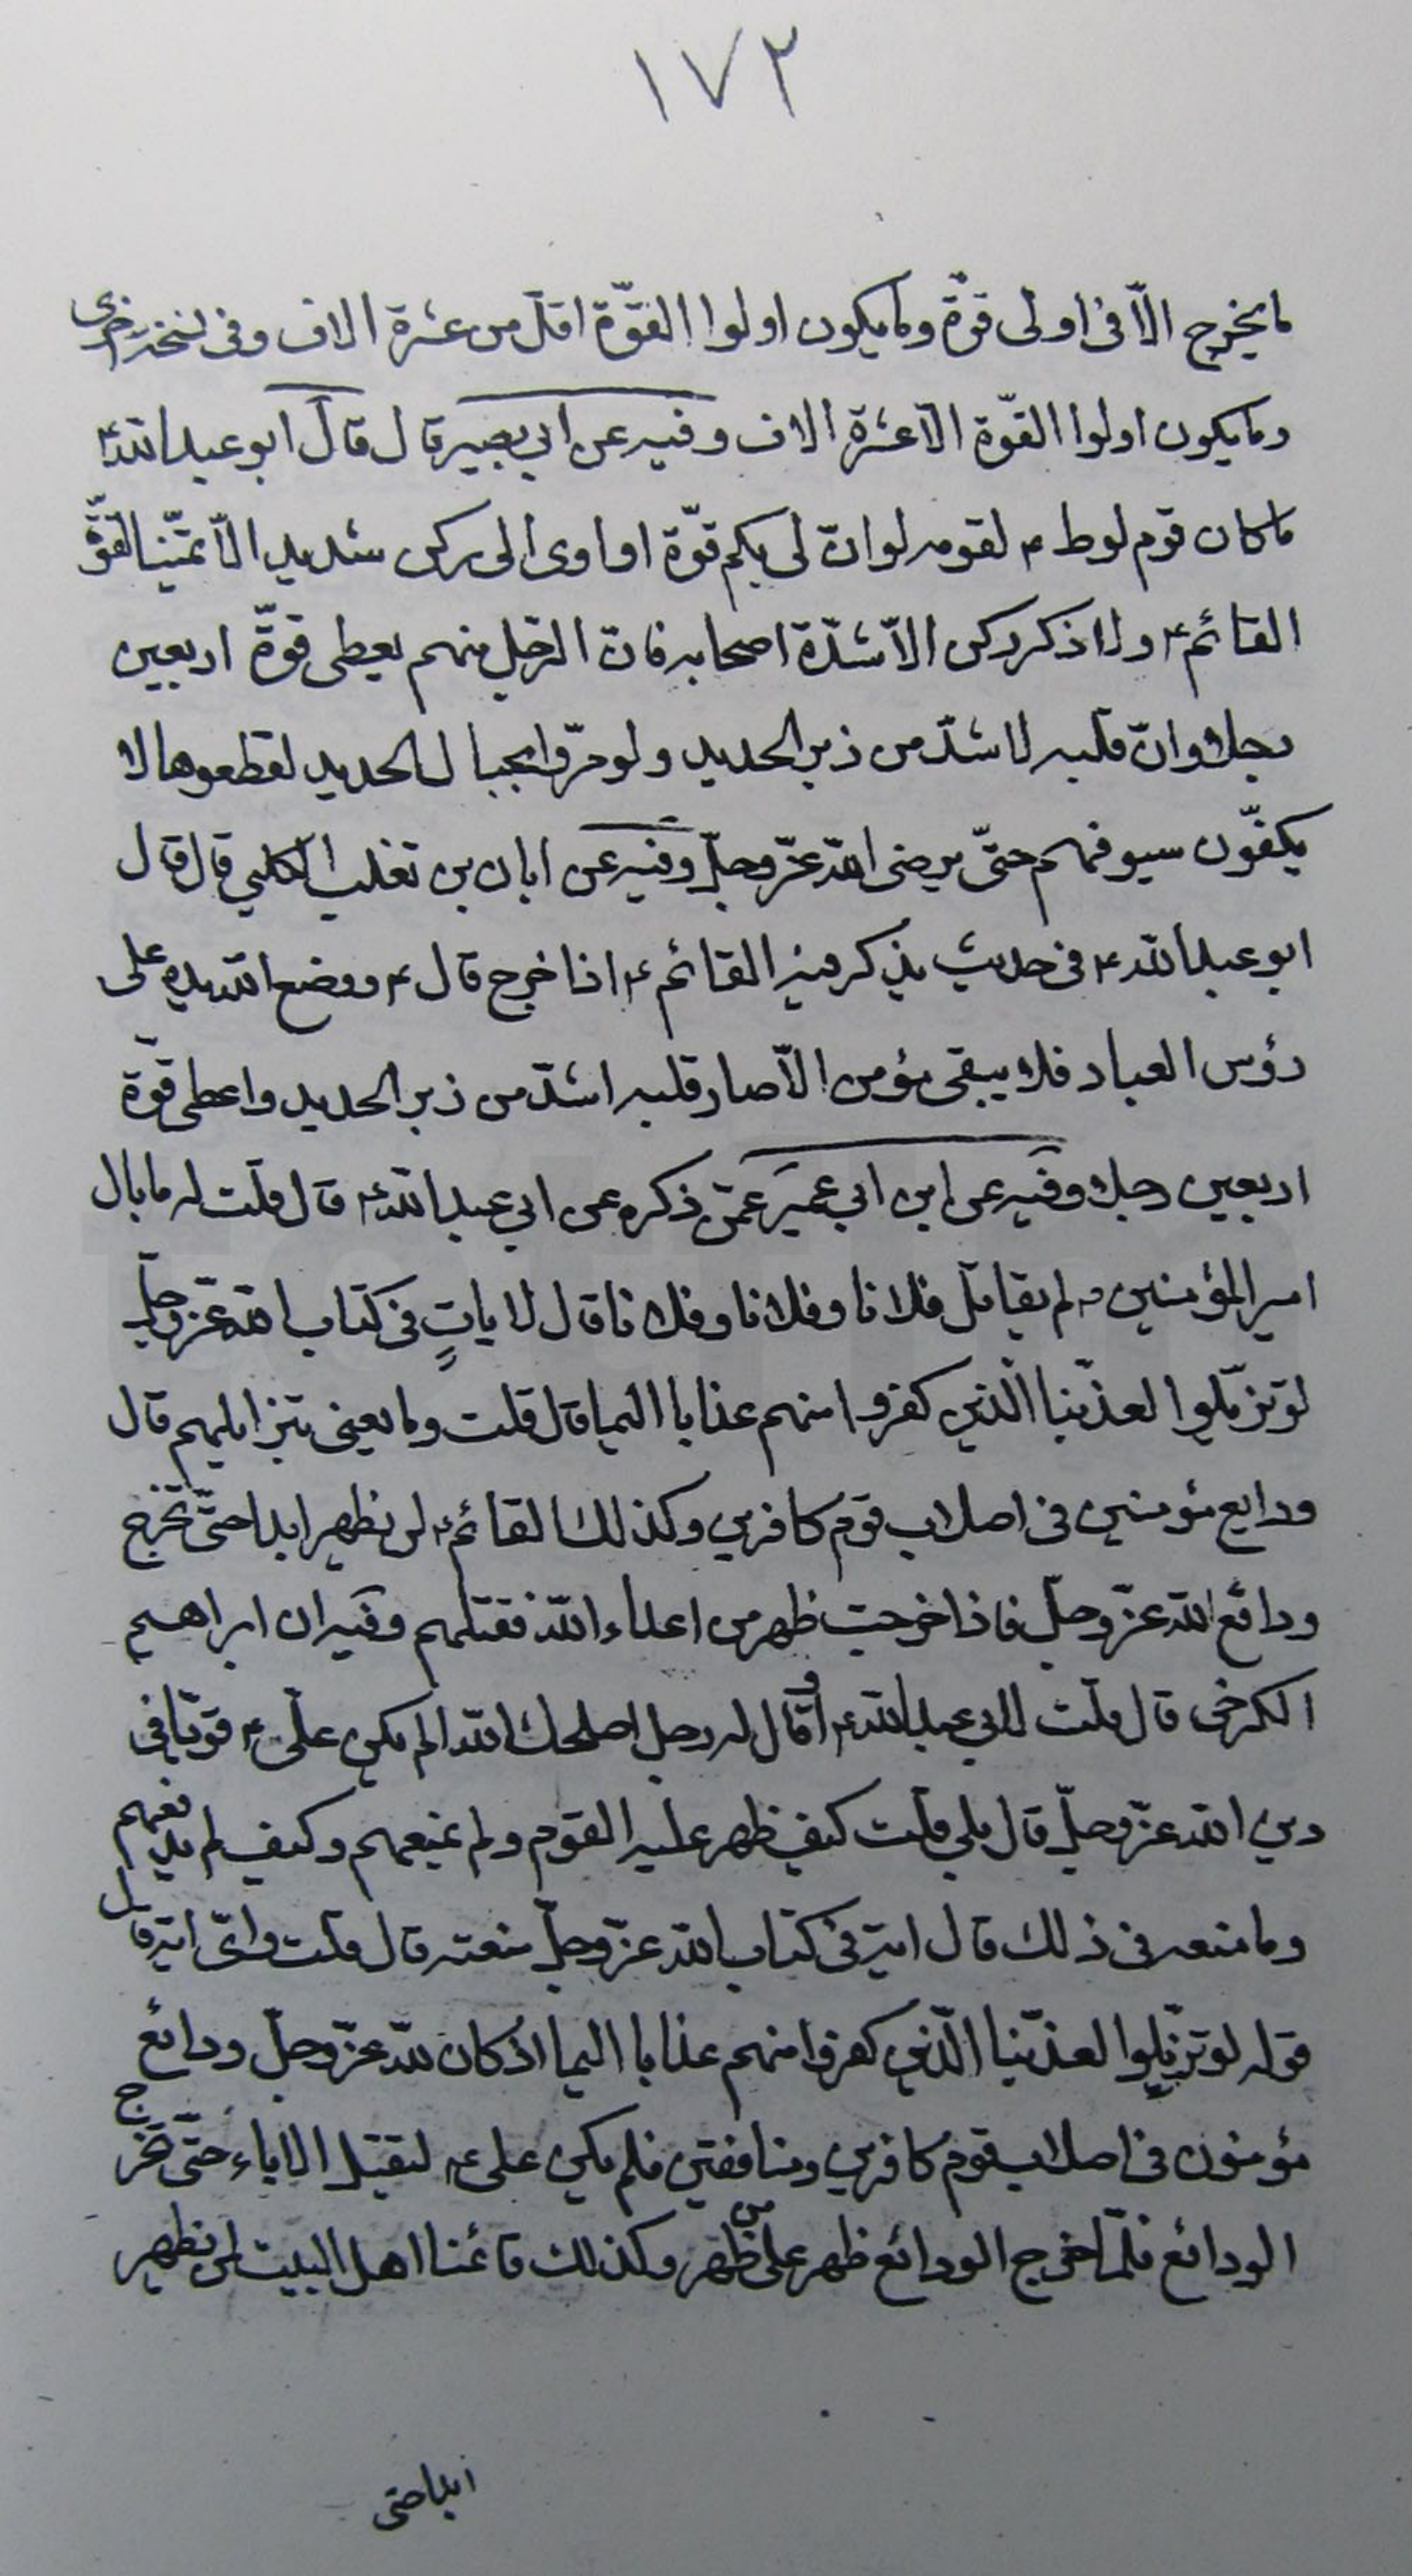 ١٧٢
ما يخرج الّا فى اولى قوّة وما يكون اولوا القوّة اقل من عشرة الاف وفى نسخة اخرى
وما يكون اولوا القوّة الّا عشرة الاف وفيه عن ابي بصير قال قال ابو عبد الله ع
ما كان قوم لوط ع لقومه لو انّ لى بكم قوّة او اوى الى ركن شديد الّا تمنّيا لقوّة
القائم ع ولا ذكر ركن الّا شدّة اصحابه فانّ الرّجل منهم يعطى قوّة اربعين
رجلا وانّ قلبه لاشدّ من زبر الحديد ولو مرّوا بجبال الحديد لقطعوها لا
يكفّون سيوفهم حتّى يرضى الله عزّ وجلّ وفيه عن ابان بن تغلب الكلبي قال قال
ابو عبد الله ع فى حديث يذكر فيه القائم ع اذا خرج قال ع ووضع الله يده على
رؤس العباد فلا يبقى مؤمن الّا صار قلبه اشدّ من زبر الحديد واعطى قوّة
اربعين رجلا وفيه عن ابن ابي عمير عمّن ذكره عن ابي عبد الله ع قال قلت له ما بال
امير المؤمنين ع لم يقاتل فلانا وفلانا وفلانا قال لاياتٍ فى كتاب الله عزّ وجلّ
لو تزيّلوا لعذّبنا الّذين كفروا منهم عذابا اليما قال قلت وما يعنى بتزايلهم قال
ودايع مؤمنين فى اصلاب قوم كافرين وكذلك القائم ع لن يظهر ابدا حتّى تخرج
ودائع الله عزّ وجلّ فاذا خرجت ظهر من اعداء الله فقتلهم وفيه ان ابراهيم
الكرخى قال قلت لابي عبد الله ع او قال له رجل اصلحك الله الم يكن علىّ ع قويّا فى
دين الله عزّ وجلّ قال بلى قلت كيف ظهر عليه القوم ولم يمنعهم وكيف لم يدفعهم
وما منعه فى ذلك قال اية فى كتاب الله عزّ وجلّ منعته قال قلت وايّ اية قال
قوله لو تزيّلوا لعذّبنا الّذين كفروا منهم عذابا اليما اذ كان لله عزّ وجلّ ودائع
مؤمنون فى اصلاب قوم كافرين ومنافقين فلم يكن على ع ليقتل الاباء حتّى تخرج
الودائع فلمّا خرج الودائع ظهر على من ظهر وكذلك قائمنا اهل البيت لن يظهر
ابدا حتى